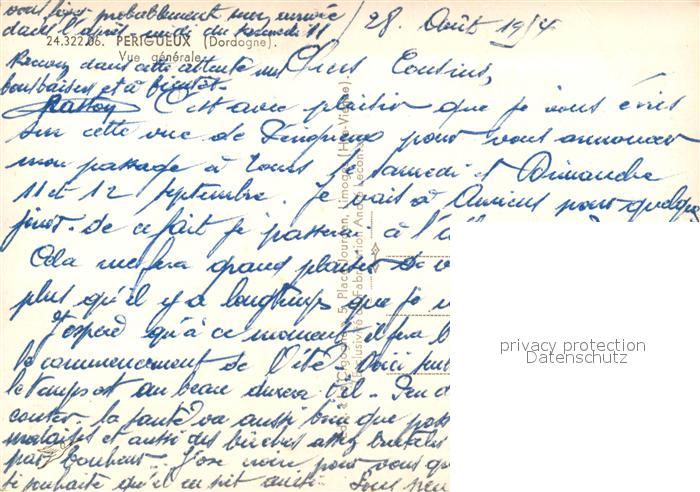 vous ferez probablement
dans l'après-midi du samedi 11
24.322.06. PERIGUEUX (Dordogne).
Vue générale
Recevez dans cette attente mes
bons baisers et à bientôt.
Gaston
28 Août 1954
Chers Cousins,
C'est avec plaisir que je vous écris
sur cette vue de Périgueux pour vous annoncer
mon passage à Tours le samedi et Dimanche
11 et 12 septembre. Je vais à Amiens pour quelques
jours. De ce fait je passerai à l'
Cela me fera grand plaisir de
plus qu'il y a longtemps que je
J'espère qu'à ce moment il fera
le commencement de l'été. Voici
le temps est au beau durera t-il. Peu
conter. la santé va aussi bien que
malaises et aussi des
par bonheur... J'ose pour vous
je souhaite qu'il en soit aussi.
5, Place Jourdan, Limoges (Hte-Vienne)
Exclusivité de Fabrication André Leconte
privacy protection
Datenschutz